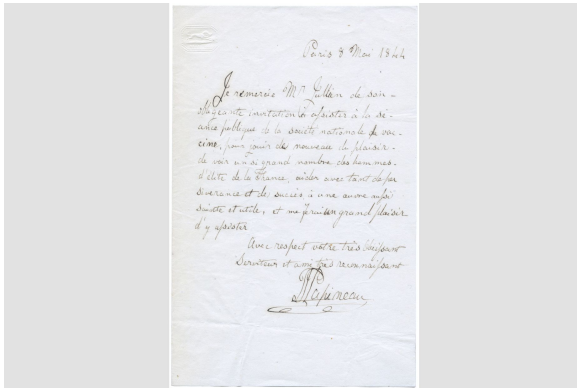 Paris 8 Mai 1844
Je remercie Mr Jullien de son
obligeante invitation à assister à la sé-
ance publique de la société nationale de vac-
cine, pour jouir de nouveau du plaisir
de voir un si grand nombre des hommes
d'élite de la France, aider avec tant de per
séverance et de succès à une œuvre aussi
sainte et utile, et me ferai un grand plaisir
d'y assister
Avec respect votre très obéissant
Serviteur et ami très reconnaissant
LJPapineau